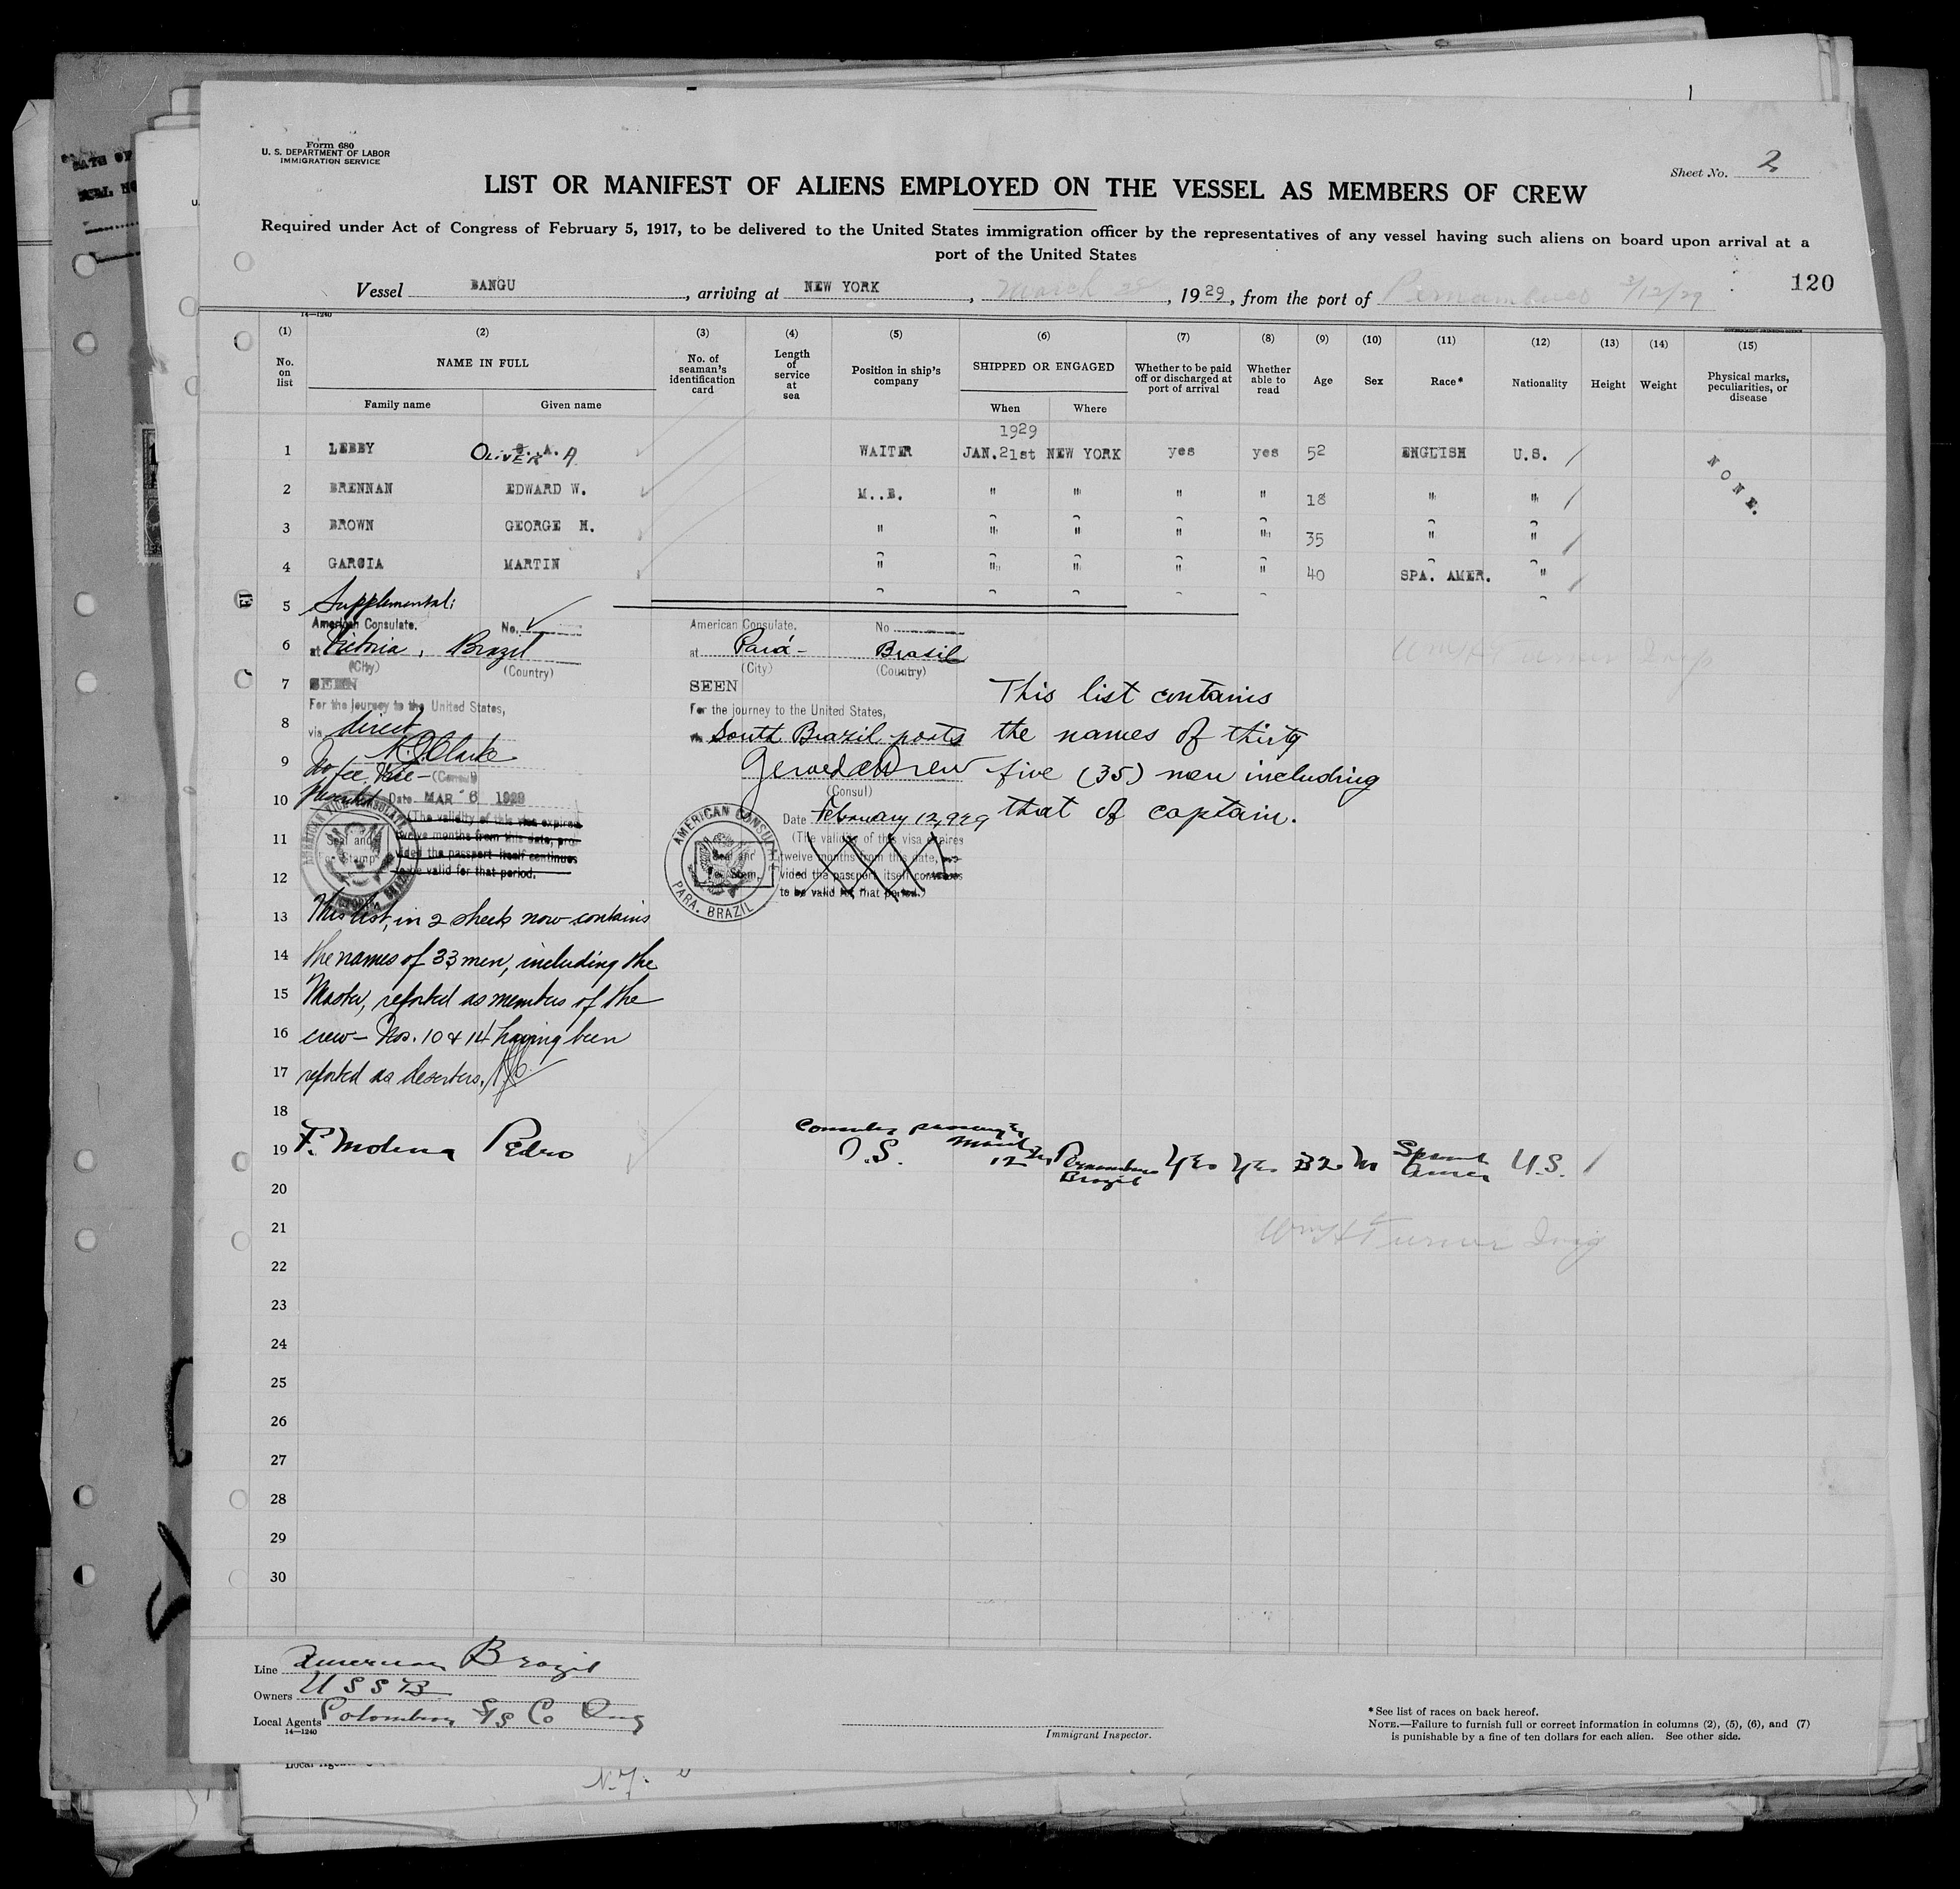 Form 680
U. S. DEPARTMENT OF LABOR
IMMIGRATION SERVICE
Sheet No. 2
LIST OR MANIFEST OF ALIENS EMPLOYED ON THE VESSEL AS MEMBERS OF CREW
Required under Act of Congress of February 5, 1917, to be delivered to the United States immigration officer by the representatives of any vessel having such aliens on board upon arrival at a
port of the United States
120
Vessel BANGU, arriving at NEW YORK, March 28, 1929, from the port of Pernambuco 3/12/29
14—1240
(1) (2) (3) (4) (5) (6) (7) (8) (9) (10) (11) (12) (13) (14) (15)
No. on list NAME IN FULL No. of seaman's identification card Length of service at sea Position in ship's company SHIPPED OR ENGAGED Whether to be paid off or discharged at port of arrival Whether able to read Age Sex Race* Nationality Height Weight Physical marks, peculiarities, or disease
Family name Given name When Where
1929
1 LEBBY OLIVER A. WAITER JAN.21st NEW YORK yes yes 52 ENGLISH U.S. /
NONE.
2 BRENNAN EDWARD W. M..B. " " " " 18 " " /
3 BROWN GEORGE H. " " " " " 35 " " /
4 GARCIA MARTIN " " " " " 40 SPA. AMER. " /
5 Supplemental:
American Consulate. No.
6 at Victoria, Brazil
(City) (Country)
7 SEEN
For the journey to the United States,
8 via direct
9 No fee
(Consul)
10 Date MAR 6 1929
(The validity of this visa expires
11 twelve months from this date, pro-
vided the passport itself continues
12 to be valid for that period.
Seal and
Stamp
American Consulate. No
at Pará - Brasil
(City) (Country)
SEEN
For the journey to the United States,
via South Brazil ports
Gerald A Drew
(Consul)
Date February 12, 929
(The validity of this visa expires
twelve months from this date, pro-
vided the passport itself continues
to be valid for that period.)
AMERICAN CONSULATE
PARA. BRAZIL
Seal and
This list contains
the names of thirty
five (35) men including
that of captain.
13 This list, in 2 sheets now contains
14 the names of 33 men, including the
15 Master, reported as members of the
16 crew - Nos. 10 & 14 having been
17 reported as deserters.
18
Consular passenger
19 F. Molina Pedro O.S. March 12 Pernambuco Brazil Yes Yes 32 M Spanish Amer U.S. /
20
21
Wm H Turner Insp
22
23
24
25
26
27
28
29
30
Line American Brazil
Owners U S S B
Local Agents Colombian SS Co Inc
14—1240
Immigrant Inspector.
* See list of races on back hereof.
NOTE.—Failure to furnish full or correct information in columns (2), (5), (6), and (7)
is punishable by a fine of ten dollars for each alien. See other side.
N.Y.